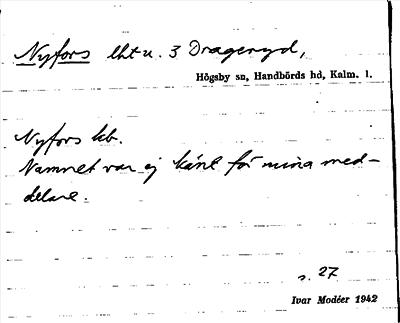 Nyfors lht u. 3 Drageryd,
Högsby sn, Handbörds hd, Kalm. l.
Nyfors kb.
Namnet var ej känt för mina med-
delare.
s. 27
Ivar Modéer 1942